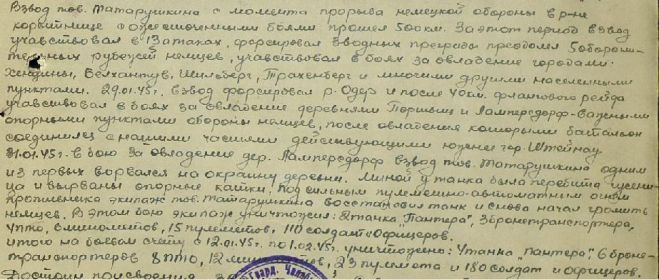 Взвод тов. Матарушкина с момента прорыва немецкой обороны в р-не
с ожесточенными боями прошел 500км. За этот период взвод
участвовал в 12 атаках, форсировал 8 водных преград преодолел 5 оборони-
тельных рубежей немцев, участвовал в боях за овладение городами:
Хенцины, Велхантув, Шильберг, Трахенберг и многими другими населенными
пунктами. 29.01.45г. взвод форсировал р. Одер и после флангового рейда
участвовал в боях за овладение деревнями и Лампередорф - важными
опорными пунктами обороны немцев, после овладения которыми батальон
соединился с нашими частями действующими южнее гор. Штейнау
31.01.45г. в бою за овладение дер. Лампередорф взвод тов. Матарушкина одним
из первых ворвался на окраину деревни. Миной у танка была перебита гусени-
ца и вырваны опорные катки. Под сильным пулеметно-автоматным огнем
противника экипаж тов. Матарушкина восстановил танк и снова начал громить
немцев. В этом бою экипаж уничтожил: 2 танка "Пантера", 3 бронетранспортера,
4 ПТО, 6 минометов, 15 пулеметов, 110 солдат и офицеров.
итого на боевом счету с 12.01.45г. по 1.02.45г. уничтожено: 4 танка "пантера" 6 броне-
транспортеров 8 ПТО, 12 23 пулемета и 180 солдат и офицеров.
Достоин присвоения
Гвард.